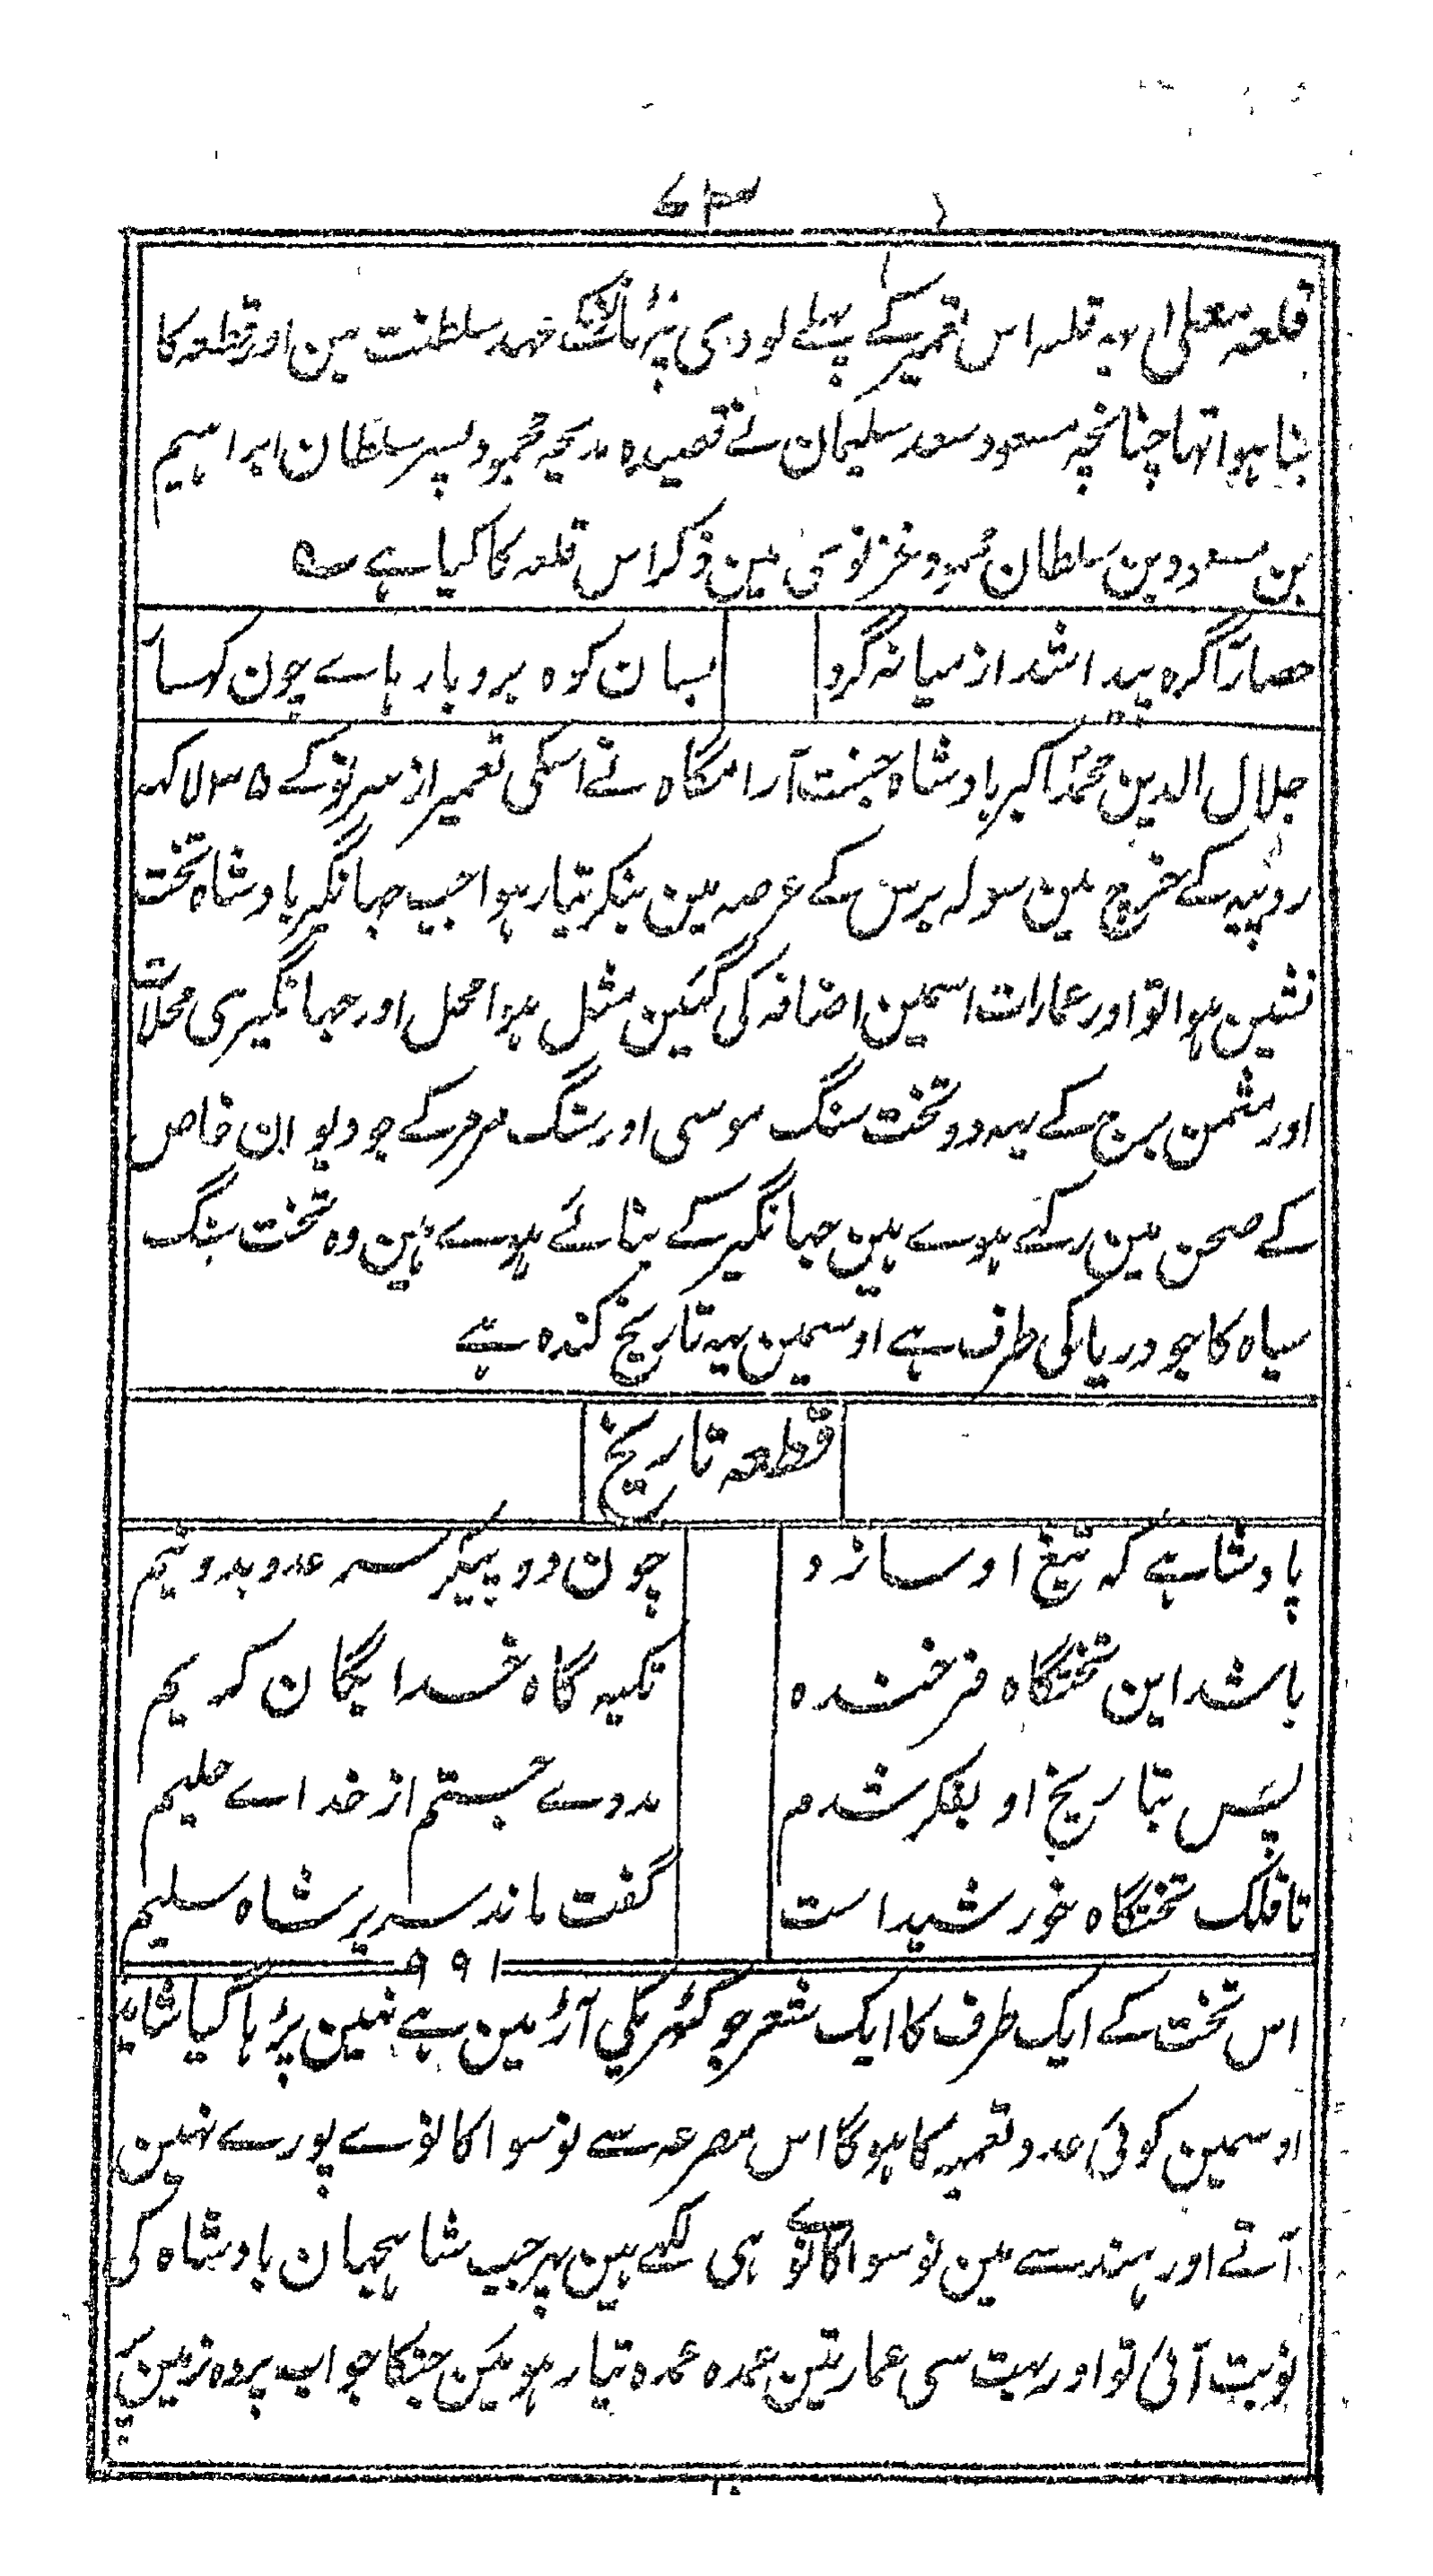 قلعہ معلی یہ قلعہ اس تعمیر کے پہلے لودی پٹھانکے عہد سلطنت مین اور قطعہ کا
بنا ہوا تہا چنانچہ مسعود سعد سلیمان نے قصیدہ مدحیہ محمود پسر سلطان ابراہیم
بن مسعود بن سلطان محمود غزنوی مین ذکر اس قلعہ کا کیا ہے
حصار آگرہ پیدا شد از میانہ گرد
بسان کوہ برو بارہاے چون کہسار
جلال الدین محمد اکبر بادشاہ جنت آرامگاہ نے اسکی تعمیر از سر نو کے ۳۵ لاکہہ
روپیہ کے خرچ مین سولہ برس کے عرصہ مین بنکر تیار ہوا جب جہانگیر بادشاہ تخت
نشین ہوا تو اور عمارات اسمین اضافہ کی گئین مثل ہوا محل اور جہانگیری محلات
اور مثمن برج کے یہہ دو تخت سنگ موسی اور سنگ مرمر کے جو دیوان خاص
کے صحن مین رکہے ہوے ہین جہانگیر کے بنائے ہوے ہین وہ تخت سنگ
سیاہ کا جو دریا کی طرف ہے اوسمین یہہ تاریخ کندہ ہے
قطعہ تاریخ
پادشاہے کہ تیغ او سازد
چون دو پیکر سر عدو بدونیم
باشد این تختگاہ فرخندہ
تکیہ گاہ خدایگان کریم
پس بتاریخ او بفکر شدم
مددے جستم از خداے حلیم
تا فلک تختگاہ خورشید است
گفت ماند سریر شاہ سلیم
۹۹۱
اس تخت کے ایک طرف کا ایک شعر جو کٹھریکی آڑ مین ہے نہین پڑہا گیا شاید
اوسمین کوئی عدد تعمیہ کا ہوگا اس مصرعہ سے نو سو اکانوے پورے نہین
آتے اور ہندسے مین نو سو اکانوے ہی لکہے ہین پہر جب شاہجہان بادشاہ کی
نوبت آئی تو اور بہت سی عمارتین عمدہ عمدہ تیار ہوئین جنکا جواب پردہ زمین پر